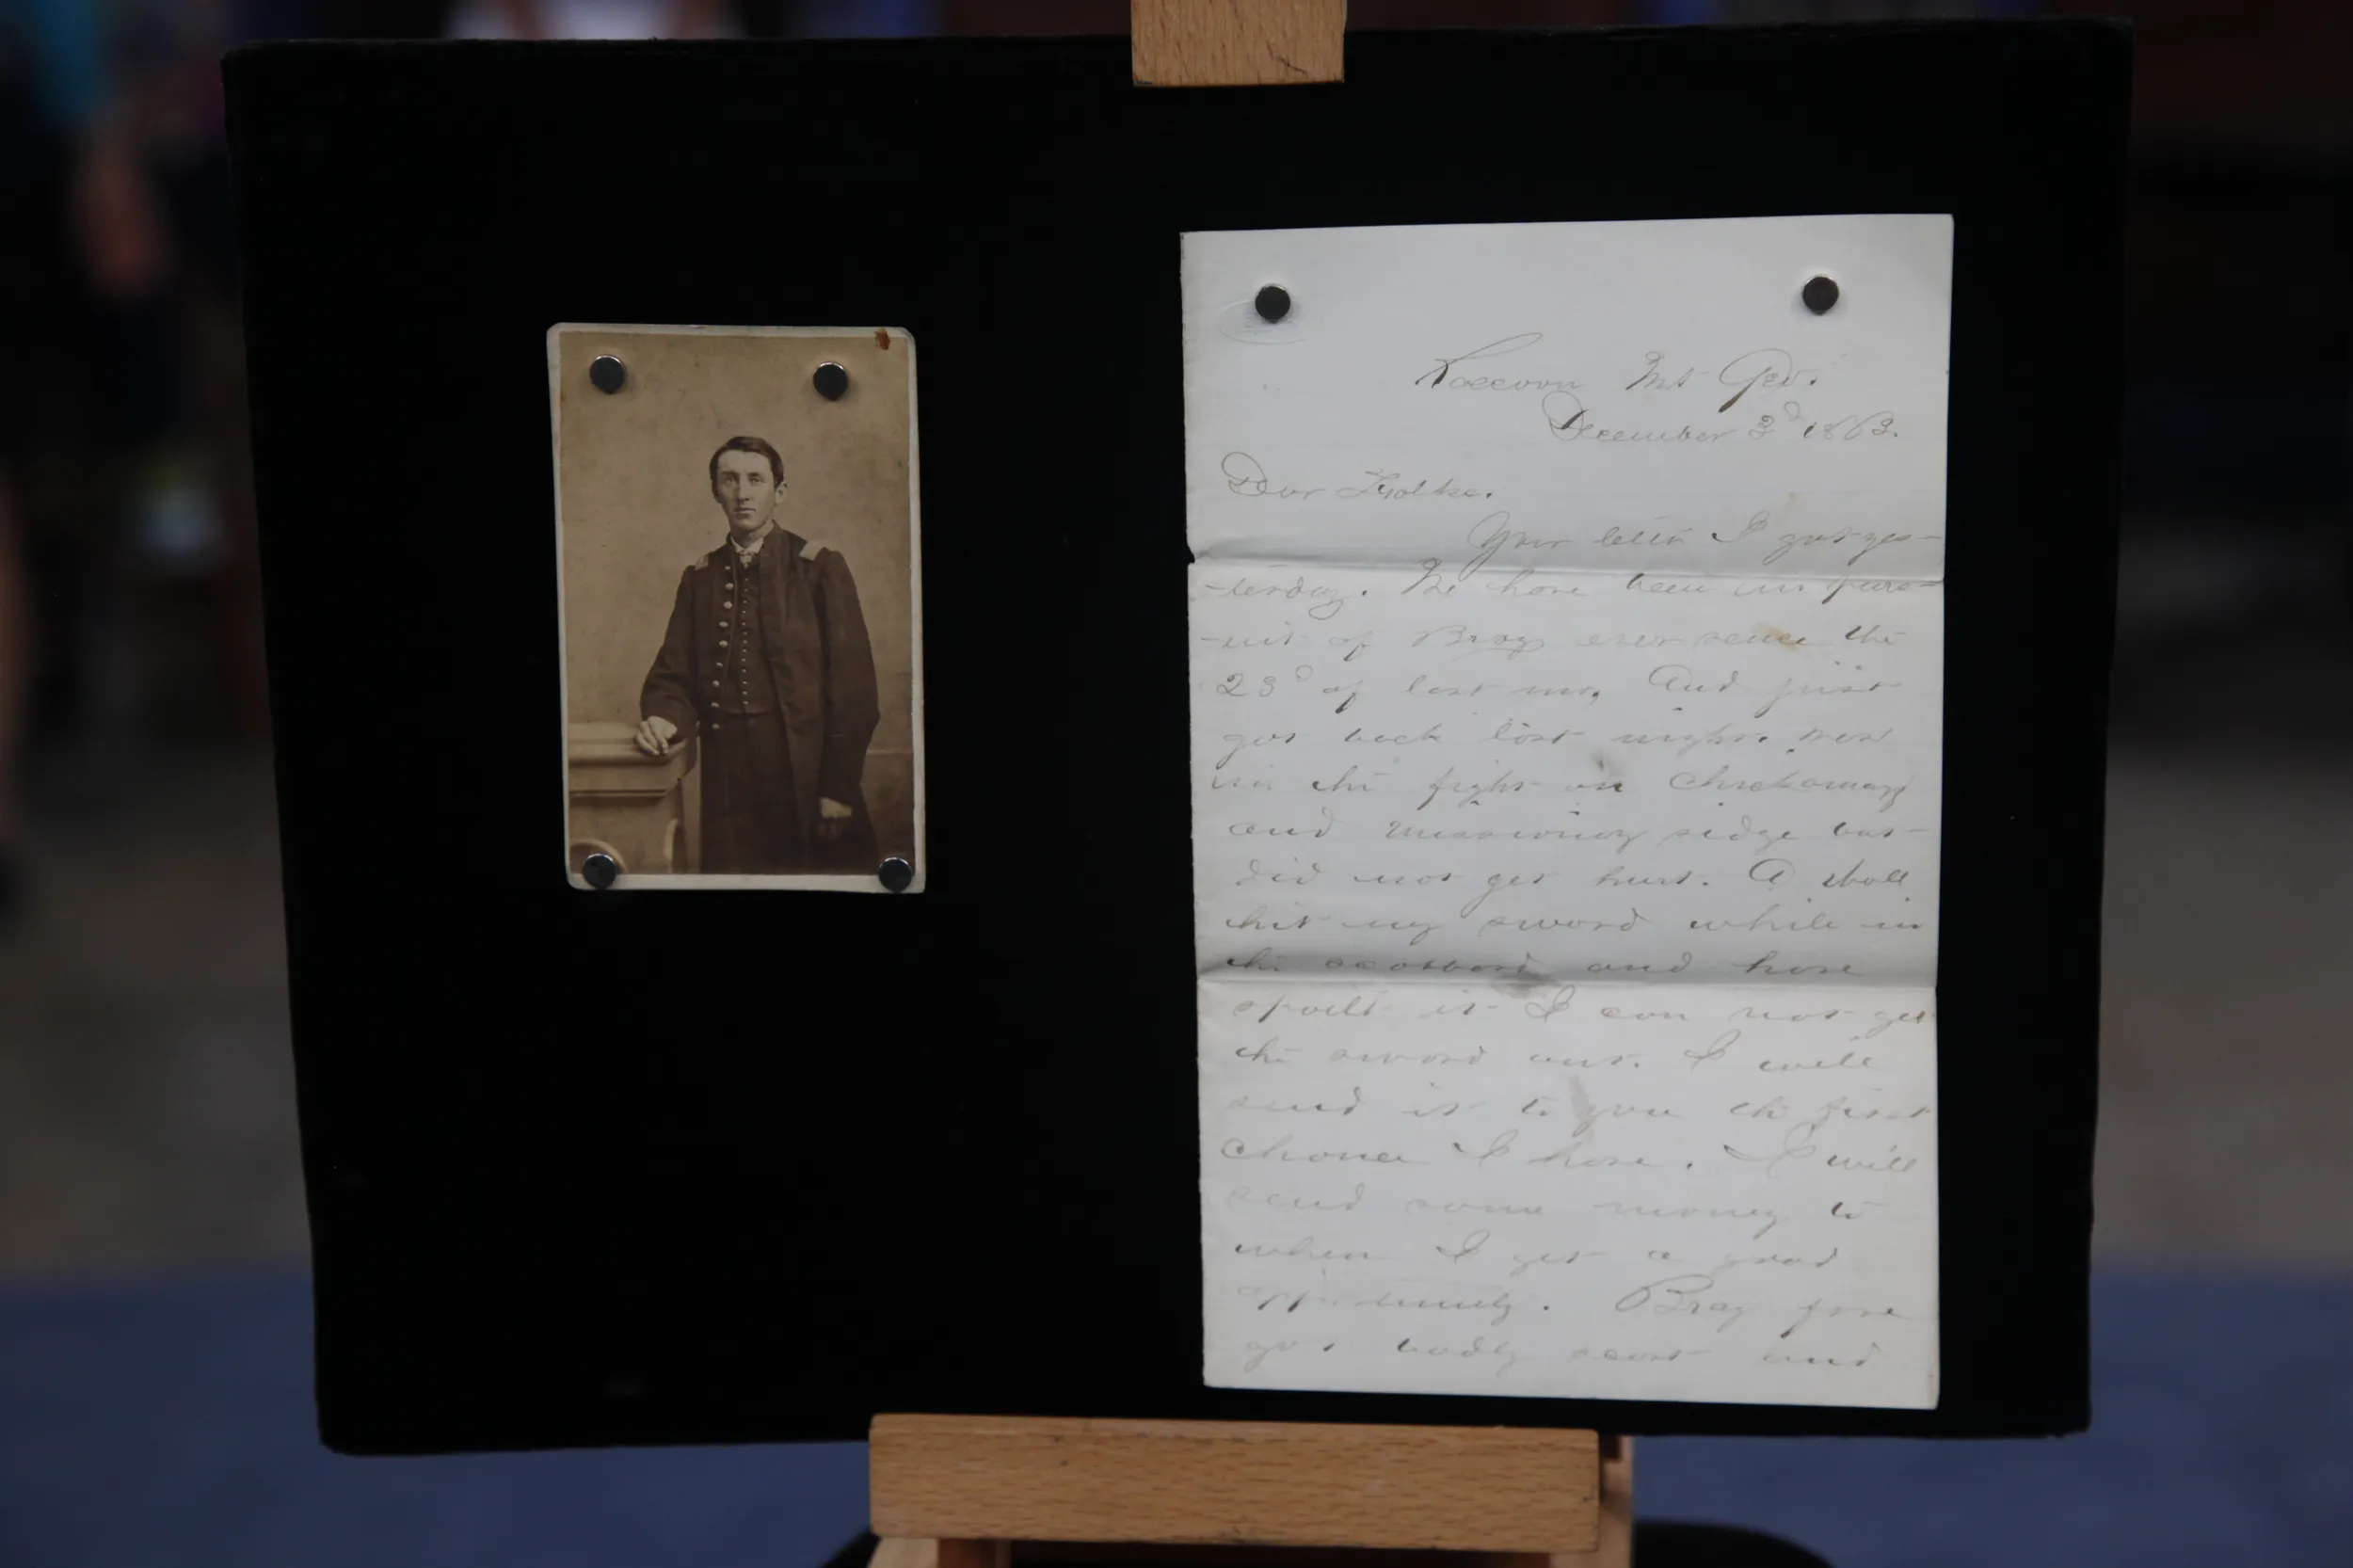 Raccoon Mt Geo.
December 3d 1863.
Dear
Your letter I got yes-
-terday. We have been in purs-
-uit of Brag ever sence the
23d of last mo, And just
got back last night. was
in the fight on Chickamaug
and Missionary ridge but
did not get hurt. A ball
hit my sword while in
the scabbard and have
spoilt it I can not get
the sword out. I will
send it to you the first
chance I have. I will
send some money to
when I get a good
opportunity. Brag
got badly and